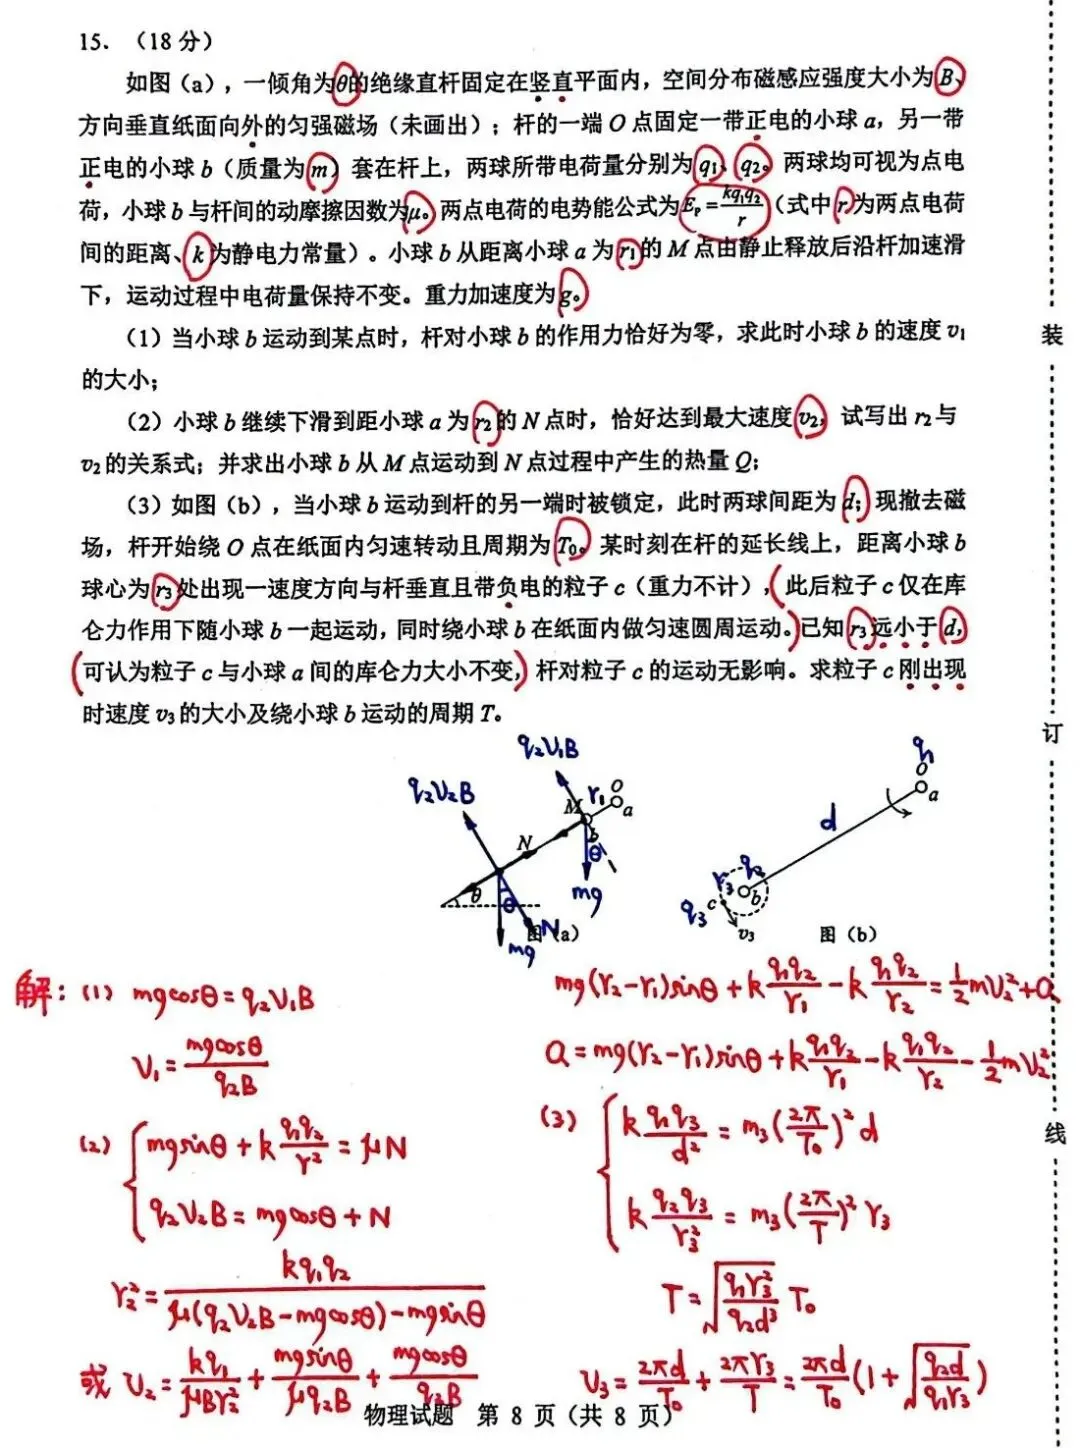 15. （18 分）
如图（a），一倾角为θ的绝缘直杆固定在竖直平面内，空间分布磁感应强度大小为 B、
方向垂直纸面向外的匀强磁场（未画出）；杆的一端 O 点固定一带正电的小球 a，另一带
正电的小球 b（质量为 m）套在杆上，两球所带电荷量分别为 q₁、q₂。两球均可视为点电
荷，小球 b 与杆间的动摩擦因数为μ。两点电荷的电势能公式为 Eₚ = kq₁q₂/r（式中 r 为两点电荷
间的距离、k 为静电力常量）。小球 b 从距离小球 a 为 r₁的 M 点由静止释放后沿杆加速滑
下，运动过程中电荷量保持不变。重力加速度为 g。
（1）当小球 b 运动到某点时，杆对小球 b 的作用力恰好为零，求此时小球 b 的速度 v₁
的大小；
（2）小球 b 继续下滑到距小球 a 为 r₂的 N 点时，恰好达到最大速度 v₂，试写出 r₂与
v₂的关系式；并求出小球 b 从 M 点运动到 N 点过程中产生的热量 Q；
（3）如图（b），当小球 b 运动到杆的另一端时被锁定，此时两球间距为 d；现撤去磁
场，杆开始绕 O 点在纸面内匀速转动且周期为 T₀。某时刻在杆的延长线上，距离小球 b
球心为 r₃处出现一速度方向与杆垂直且带负电的粒子 c（重力不计），此后粒子 c 仅在库
仑力作用下随小球 b 一起运动，同时绕小球 b 在纸面内做匀速圆周运动。已知 r₃远小于 d，
可认为粒子 c 与小球 a 间的库仑力大小不变，杆对粒子 c 的运动无影响。求粒子 c 刚出现
时速度 v₃的大小及绕小球 b 运动的周期 T。
装
订
线
q₂v₁B
q₂v₂B
M r₁ O a
b
N
θ
θ
θ
mg
N
mg
图（a）
q₁
O
a
d
q₂
r₃
b
q₃ c
v₃
图（b）
解：(1) mgcosθ = q₂v₁B
v₁ = mgcosθ/q₂B
(2) { mgsinθ + k q₁q₂/r² = μN
q₂v₂B = mgcosθ + N
r₂² = kq₁q₂/(μ(q₂v₂B − mgcosθ) − mgsinθ)
或 v₂ = kq₁/μBr₂² + mgsinθ/μq₂B + mgcosθ/q₂B
mg(r₂ − r₁)sinθ + k q₁q₂/r₁ − k q₁q₂/r₂ = ½mv₂² + Q
Q = mg(r₂ − r₁)sinθ + k q₁q₂/r₁ − k q₁q₂/r₂ − ½mv₂²
(3) { k q₁q₃/d² = m₃(2π/T₀)² d
k q₂q₃/r₃² = m₃(2π/T)² r₃
T = √(q₁r₃³/q₂d³) T₀
v₃ = 2πd/T₀ + 2πr₃/T = 2πd/T₀ (1 + √(q₂d/q₁r₃))
物理试题 第 8 页（共 8 页）